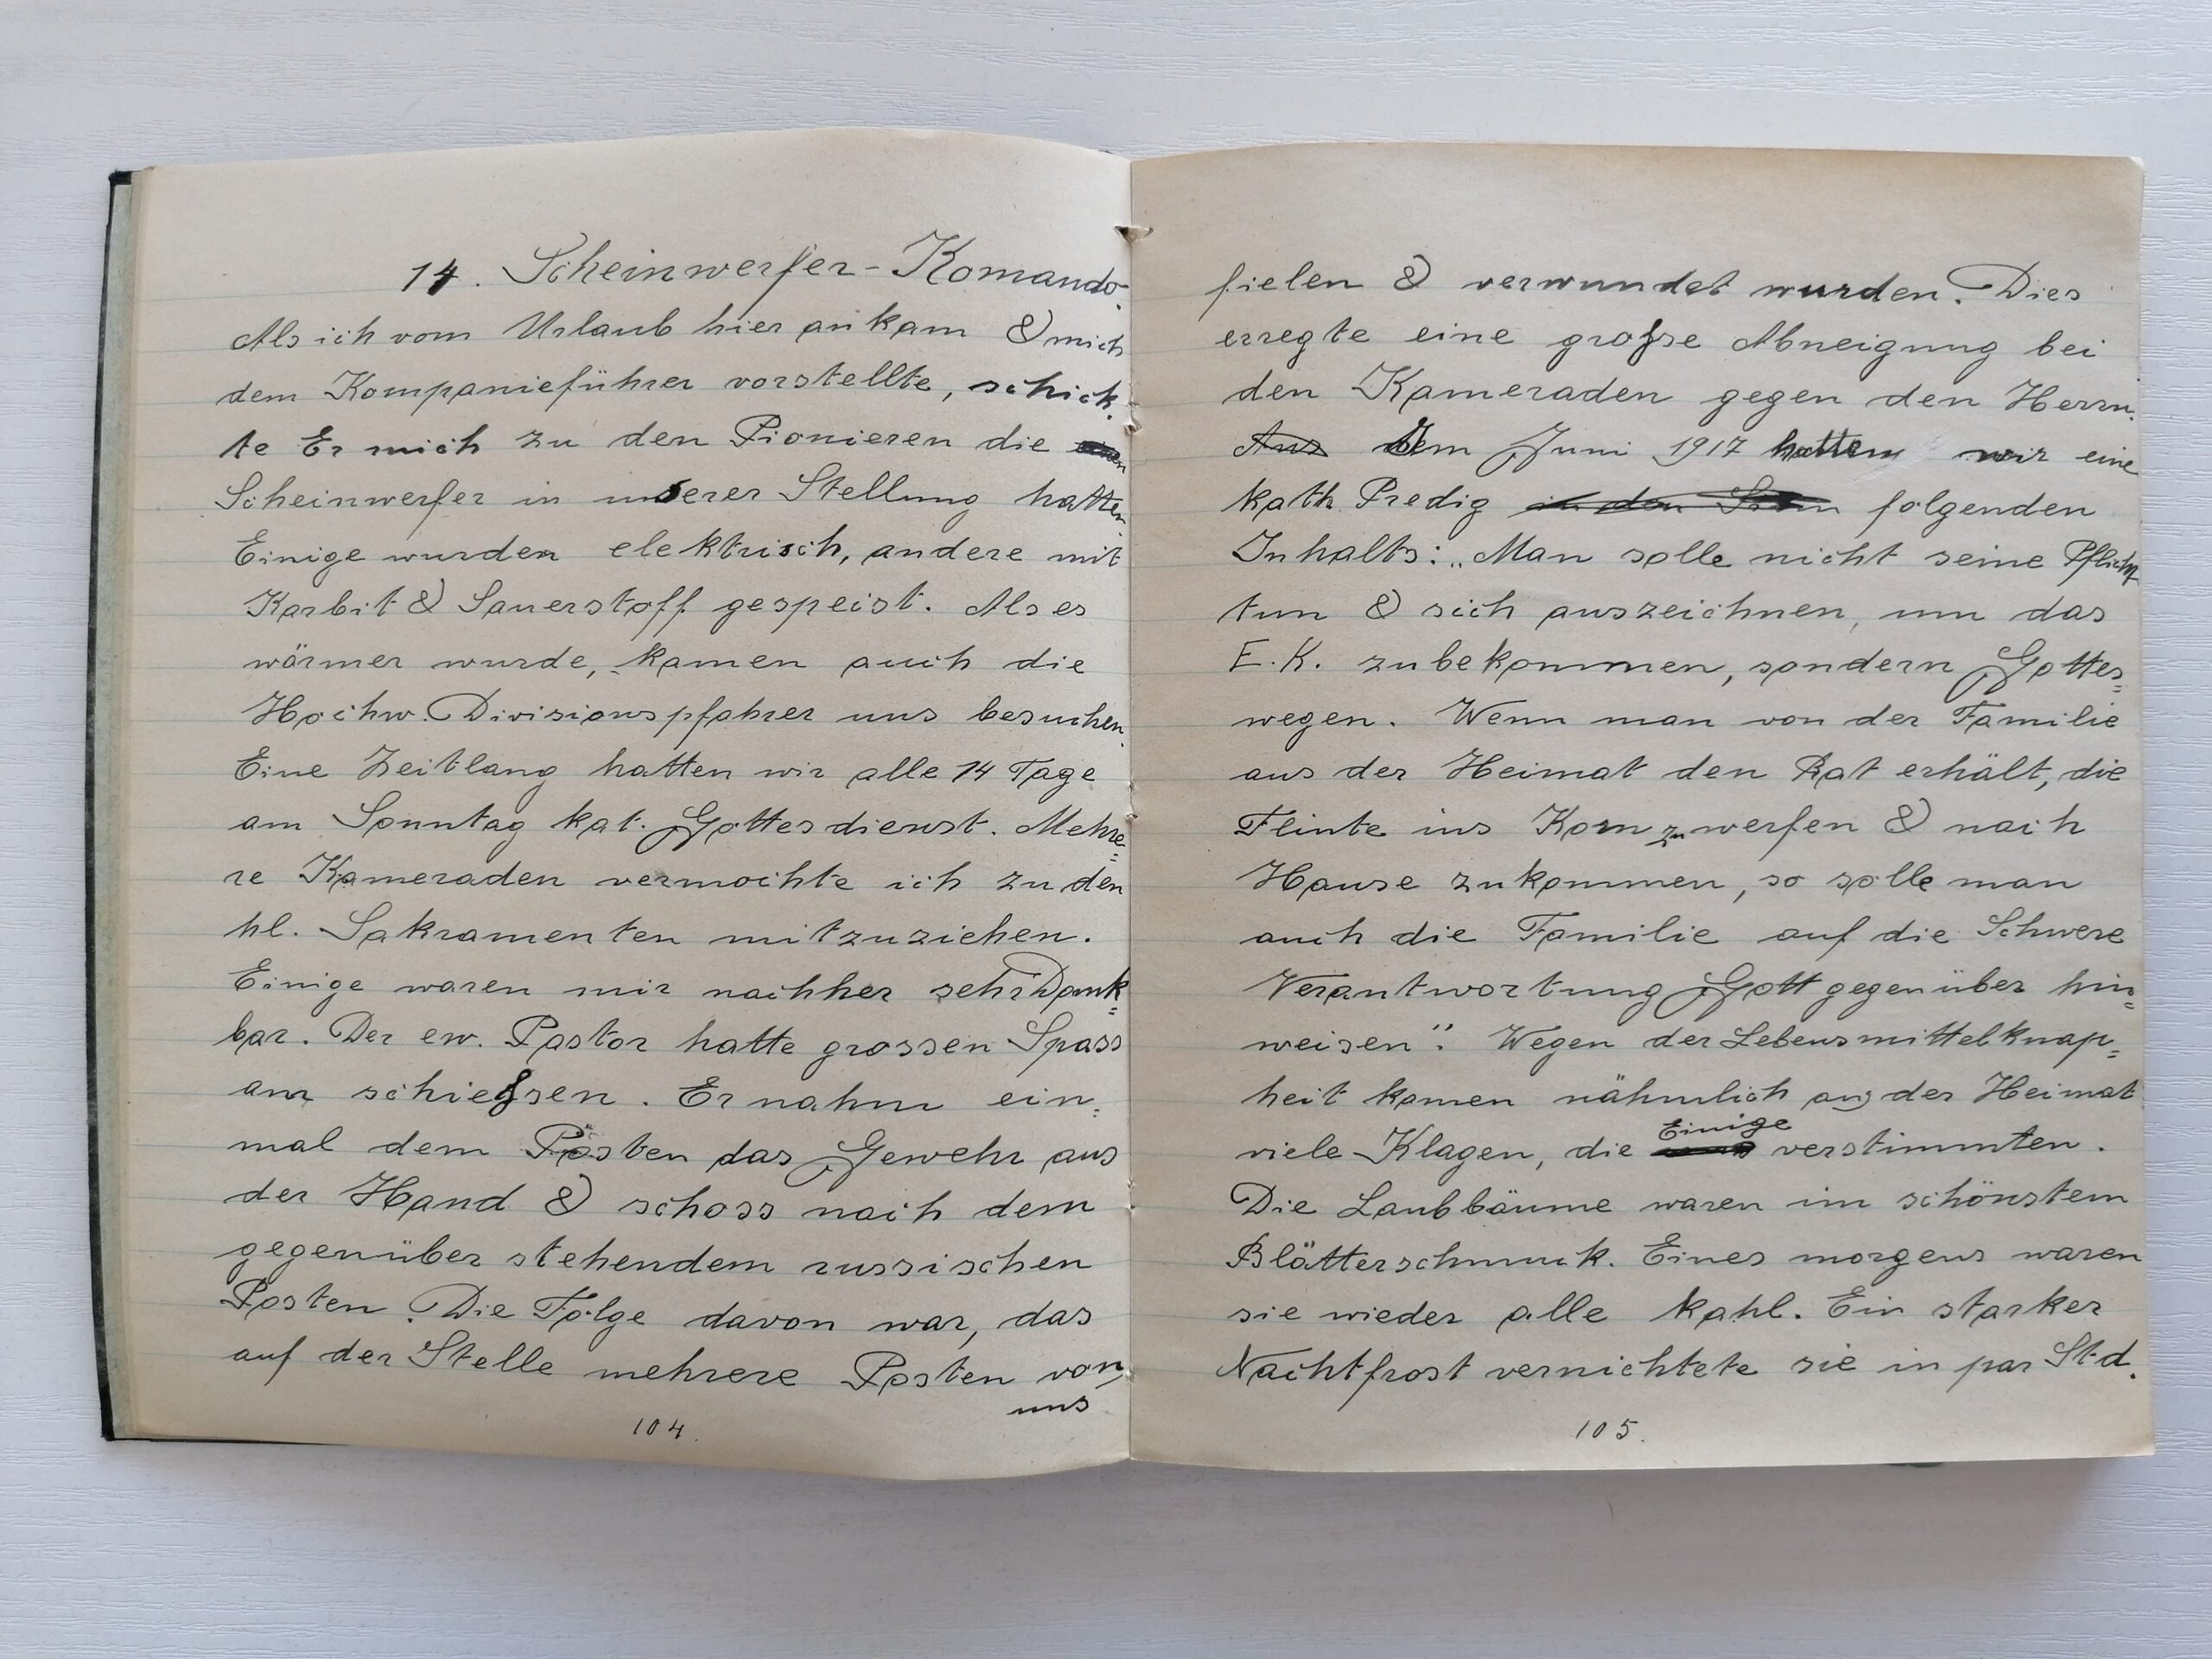 14. Scheinwerfer-Komando.
Als ich vom Urlaub hier ankam & mich
dem Kompanieführer vorstellte, schick-
te Er mich zu den Pionieren die
Scheinwerfer in unserer Stellung hatten
Einige wurden elektrisch, andere mit
Karbit & Sauerstoff gespeist. Als es
wärmer wurde, kamen auch die
Hochw. Divisionspfahrer uns besuchen.
Eine Zeitlang hatten wir alle 14 Tage
am Sonntag kat. Gottesdienst. Mehre=
re Kameraden vermochte ich zu den
hl. Sakramenten mitzuziehen.
Einige waren mir nachher sehr Dank=
bar. Der ew. Pastor hatte grossen Spass
am schießsen. Er nahm ein=
mal dem Posten das Gewehr aus
der Hand & schoss nach dem
gegenüber stehendem russischen
Posten. Die Folge davon war, das
auf der Stelle mehrere Posten von
uns
104.
fielen & verwundet wurden. Dies
erregte eine große Abneigung bei
den Kameraden gegen den Herrn.
Aus Im Juni 1917 hatten wir eine
kath. Predig in den folgenden
Inhalts: „Man solle nicht seine Pflicht
tun & sich auszeichnen, um das
E.K. zubekommen, sondern Gottes=
wegen. Wenn man von der Familie
aus der Heimat den Rat erhält, die
Flinte ins Korn zu werfen & nach
Hause zukommen, so solle man
auch die Familie auf die Schwere
Verantwortung Gott gegenüber hin=
weisen". Wegen der Lebensmittelknap=
heit kamen nähmlich aus der Heimat
viele Klagen, die Einige verstimmten.
Die Laubbäume waren im schönstem
Blätterschmuck. Eines morgens waren
sie wieder alle kahl. Ein starker
Nachtfrost vernichtete sie in par Std.
105.